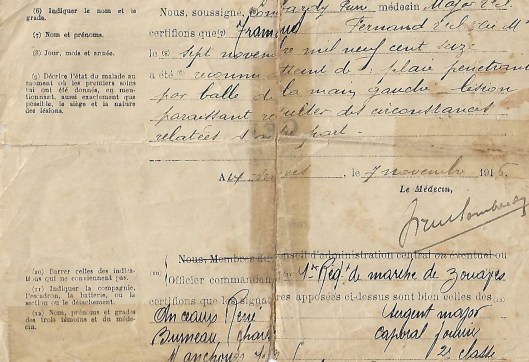 (6) Indiquer le nom et le grade.
(7) Nom et prénoms.
(8) Jour, mois et année.
(9) Décrire l'état du malade au moment où les premiers soins lui ont été donnés, en mentionnant, aussi exactement que possible, le siège et la nature des lésions.
Nous, soussigné, médecin Major
certifions que (7) François Fernand
le (8) sept novembre mil neuf cent seize
a été (9) reconnu atteint de : plaie pénétrante
par balle de la main gauche. lésion
paraissant résulter des circonstances
relatées d'autre part.
A , le 7 novembre 1916
Le Médecin,
(10) Barrer celles des indications qui ne conviennent pas.
(11) Indiquer la compagnie, l'escadron, la batterie, ou la section ou le détachement.
(12) Nom, prénoms et grades des trois témoins et du médecin.
Nous, Membres du conseil d'administration central ou éventuel ou
(10) Officier commandant Régt de marche de Zouaves
certifions que les signatures apposées ci-dessus sont bien celles des
Anceaux Pierre Sergent major
Bruneau Charles Caporal fourrier
2e classe